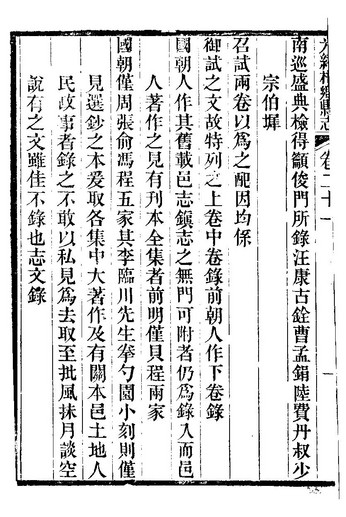 光緒桐鄉縣志 卷二十一
南巡盛典檢得顧俊門所錄汪康古銓曹孟鋗陸費丹叔少
宗伯墀
召試兩卷以為之配因均係
御試之文故特列之上卷中卷錄前朝人作下卷錄
國朝人作其舊載邑志鎮志之無門可附者仍為錄入而邑
人著作之見有刊本全集者前明僅貝程兩家
國朝僅周張俞馮程五家其李臨川先生拳勺園小刻則僅
見選鈔之本爰取各集中大著作及有關本邑土地人
民政事者錄之不敢以私見為去取至批風抹月談空
說有之文雖佳不錄也志文錄